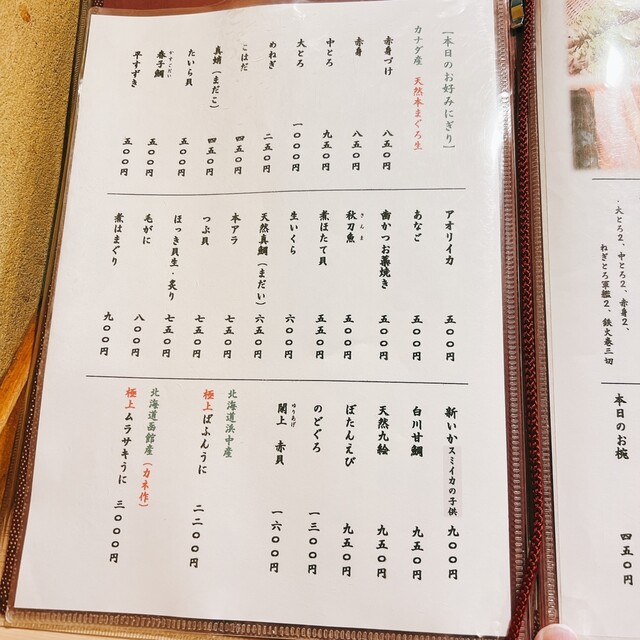 [本日のお好みにぎり]
カナダ産 天然本まぐろ生
赤身づけ 八五〇円
赤身 八五〇円
中とろ 九五〇円
大とろ 一〇〇〇円
めねぎ 二五〇円
こはだ 四五〇円
真蛸(まだこ) 四五〇円
たいら貝 五〇〇円
春子鯛 五〇〇円
かすごだい
平すずき 五〇〇円
アオリイカ 五〇〇円
あなご 五〇〇円
歯かつお藁焼き 五〇〇円
秋刀魚 五五〇円
さんま
煮ほたて貝 五五〇円
生いくら 六〇〇円
天然真鯛(まだい) 六五〇円
本アラ 七五〇円
つぶ貝 七五〇円
ほっき貝生・炙り 七五〇円
毛がに 八〇〇円
煮はまぐり 九〇〇円
新いかスミイカの子供 九〇〇円
白川甘鯛 九五〇円
天然九絵 九五〇円
ぼたんえび 九五〇円
のどぐろ 一三〇〇円
閖上 赤貝 一六〇〇円
ゆりあげ
北海道浜中産
極上ばふんうに 二二〇〇円
北海道函館産(カネ作)
極上ムラサキうに 三〇〇〇円
・大とろ2、中とろ2、赤身2、
ねぎとろ軍艦2、鉄火巻三切
本日のお椀 四五〇円